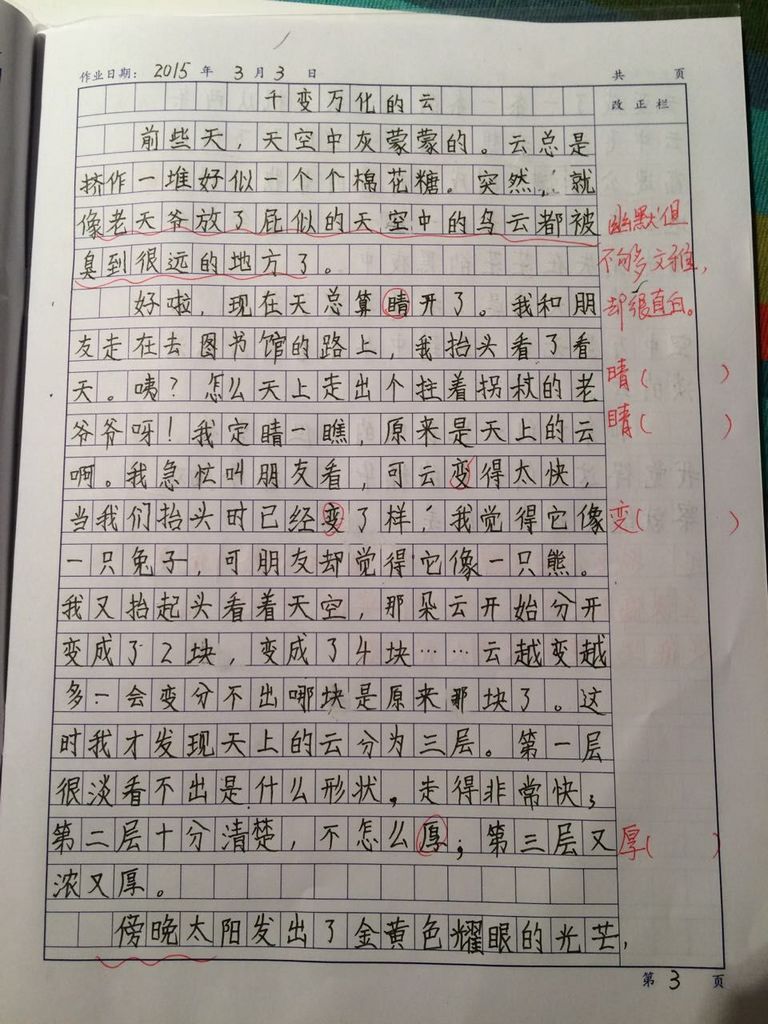 作业日期: 2015 年 3 月 3 日 共 页
千变万化的云 改正栏
前些天，天空中灰蒙蒙的。云总是
挤作一堆好似一个个棉花糖。突然，就
像老天爷放了屁似的天空中的乌云都被 幽默但
臭到很远的地方了。 不够文雅，
好啦，现在天总算晴开了。我和朋 却很直白。
友走在去图书馆的路上，我抬头看了看
天。咦？怎么天上走出个拄着拐杖的老 晴( )
爷爷呀！我定睛一瞧，原来是天上的云 睛( )
啊。我急忙叫朋友看，可云变得太快，
当我们抬头时已经变了样，我觉得它像 变( )
一只兔子，可朋友却觉得它像一只熊。
我又抬起头看着天空，那朵云开始分开
变成了2块，变成了4块……云越变越
多一会变分不出哪块是原来那块了。这
时我才发现天上的云分为三层。第一层
很淡看不出是什么形状，走得非常快；
第二层十分清楚，不怎么厚；第三层又 厚( )
浓又厚。
傍晚太阳发出了金黄色耀眼的光芒，
第 3 页